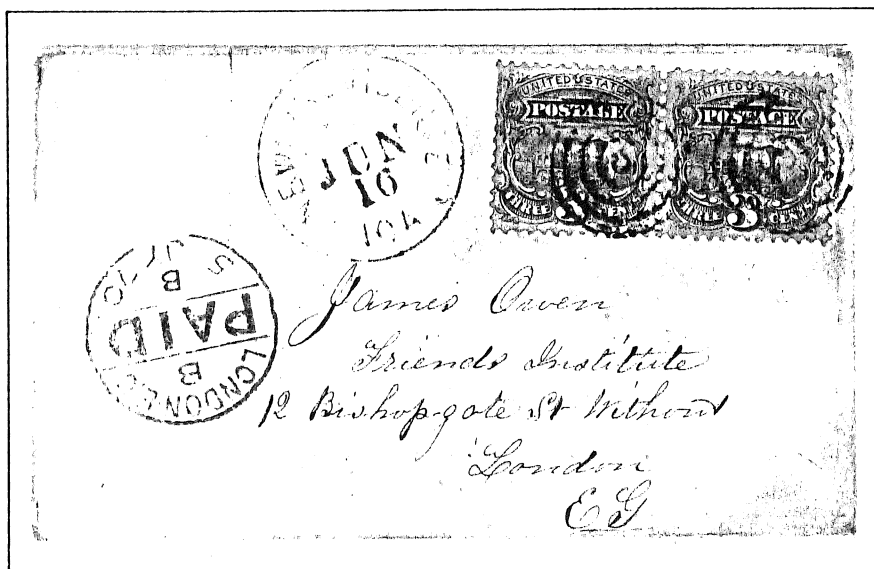 UNITED STATES
POSTAGE
THREE 3 CENTS
UNITED STATES
POSTAGE
THREE 3 CENTS
NEW
JUN
16
S JY 70
B
PAID
B
LONDON
James Owen
Friends Institute
12 Bishopgate St Without
London
EG